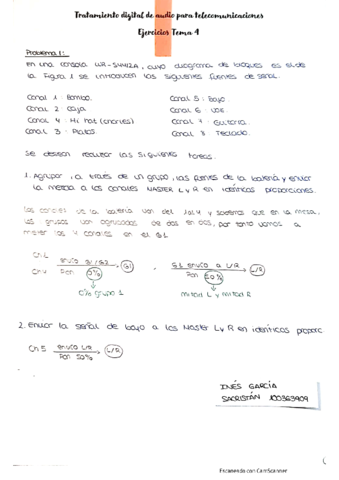 Tratamiento digital de audio para telecomunicaciones
Ejercicios Tema 4
Problema 1:
En una consola WR-S4412A, cuyo diagrama de bloques es el de
la Figura 1 se introducen las siguientes fuentes de señal.
Canal 1: Bombo.
Canal 5: Bajo.
Canal 2: Caja
Canal 6: Voz.
Canal 4: Hi hat (charles)
Canal 7: Guitarra.
Canal 3: Platos.
Canal 8: Teclado.
Se desean realizar las siguientes tareas.
1. Agrupar, a través de un grupo, las fuentes de la batería y enviar
la mezcla a los canales MASTER L y R en idénticas proporciones.
Los canales de la batería van del 1 al 4 y sabemos que en la mesa,
los grupos van agrupados de dos en dos, por tanto vamos a
meter los 4 canales en el G1
Ch 1 envío G1/G2 G1 G1 envío a L/R L/R
Ch 4 Pan 0% Pan 50%
0% grupo 1 mitad L y mitad R
2. Enviar la señal de bajo a los MASTER L y R en idénticas proporc.
Ch 5 envío L/R L/R
Pan 50%
INÉS GARCÍA
SACRISTÁN 100363909
Escaneado con CamScanner